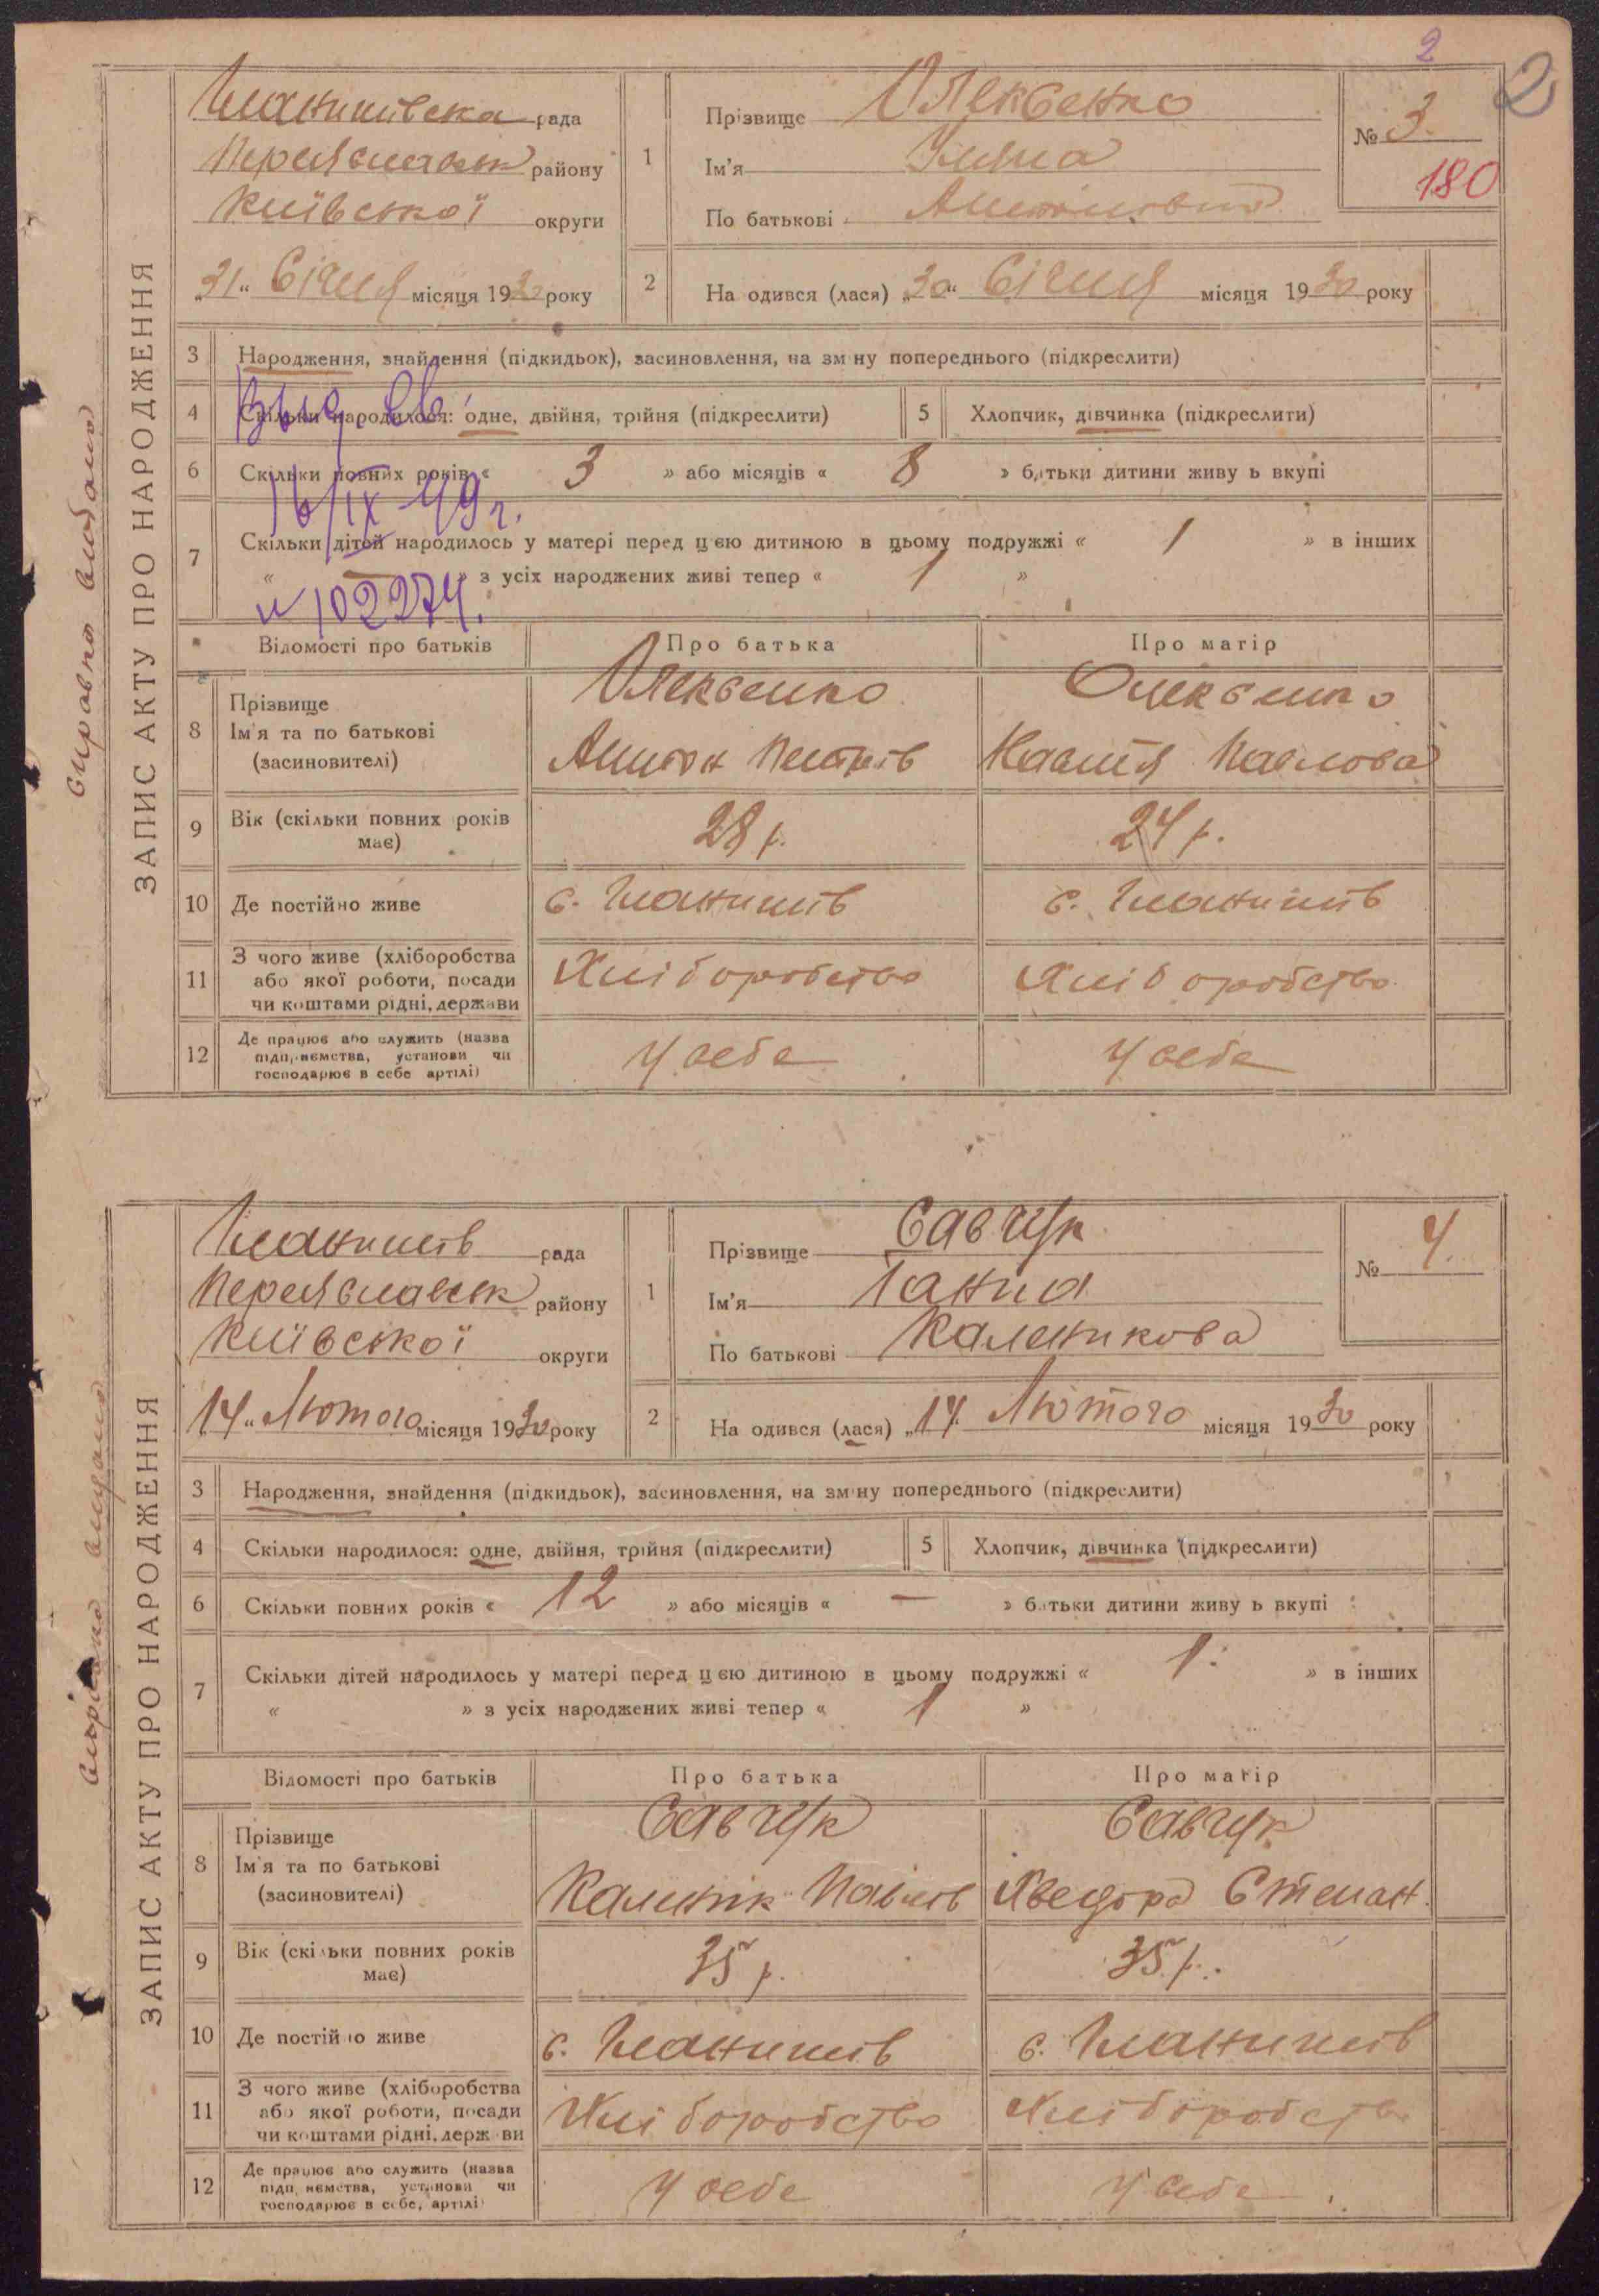 2
2
ЗАПИС АКТУ ПРО НАРОДЖЕННЯ
рада
Переяславськ району
Київської округи
„31“ Січня місяця 1930 року
1
Прізвище Олексенко
Ім'я Уляна
По батькові
№ 3.
180
2
На одився (лася) „30“ Січня місяця 1930 року
3 Народження, знайдення (підкидьок), засиновлення, на зм ну попереднього (підкреслити)
4 Скільки народилося: одне, двійня, трійня (підкреслити)
5 Хлопчик, дівчинка (підкреслити)
6 Скільки повних років « 3 » або місяців « 8 » батьки дитини живу ь вкупі
16/IX-49 г.
7 Скільки дітей народилось у матері перед ц єю дитиною в цьому подружжі « 1 » в інших
« — » з усіх народжених живі тепер « 1 »
№102274.
Відомості про батьків Про батька Про матір
8 Прізвище Ім'я та по батькові (засиновителі)
Олексенко
Антон
Олексенко
Павлова
9 Вік (скільки повних років має) 28 р. 24 р.
10 Де постійно живе с. с.
11 З чого живе (хліборобства або якої роботи, посади чи коштами рідні, держави Хліборобство Хліборобство
12 Де працює або служить (назва підприємства, установи чи господарює в себе артілі) У себе У себе
ЗАПИС АКТУ ПРО НАРОДЖЕННЯ
рада
Переяславськ району
Київської округи
„14“ Лютого місяця 1930 року
1
Прізвище Савчук
Ім'я Ганна
По батькові Каленикова
№ 4.
2
На одився (лася) „14 Лютого місяця 1930 року
3 Народження, знайдення (підкидьок), засиновлення, на зм ну попереднього (підкреслити)
4 Скільки народилося: одне, двійня, трійня (підкреслити)
5 Хлопчик, дівчинка (підкреслити)
6 Скільки повних років « 12 » або місяців « — » батьки дитини живу ь вкупі
7 Скільки дітей народилось у матері перед ц єю дитиною в цьому подружжі « 1 » в інших
« » з усіх народжених живі тепер « 1 »
Відомості про батьків Про батька Про матір
8 Прізвище Ім'я та по батькові (засиновителі)
Савчук
Каленік Павлов
Савчук
Хведора Степан.
9 Вік (скільки повних років має) 35 р. 35 р.
10 Де постійно живе с. с.
11 З чого живе (хліборобства або якої роботи, посади чи коштами рідні, держ ви Хліборобство Хліборобств
12 Де працює або служить (назва підприємства, установи чи господарює в себе, артілі) У себе У себе